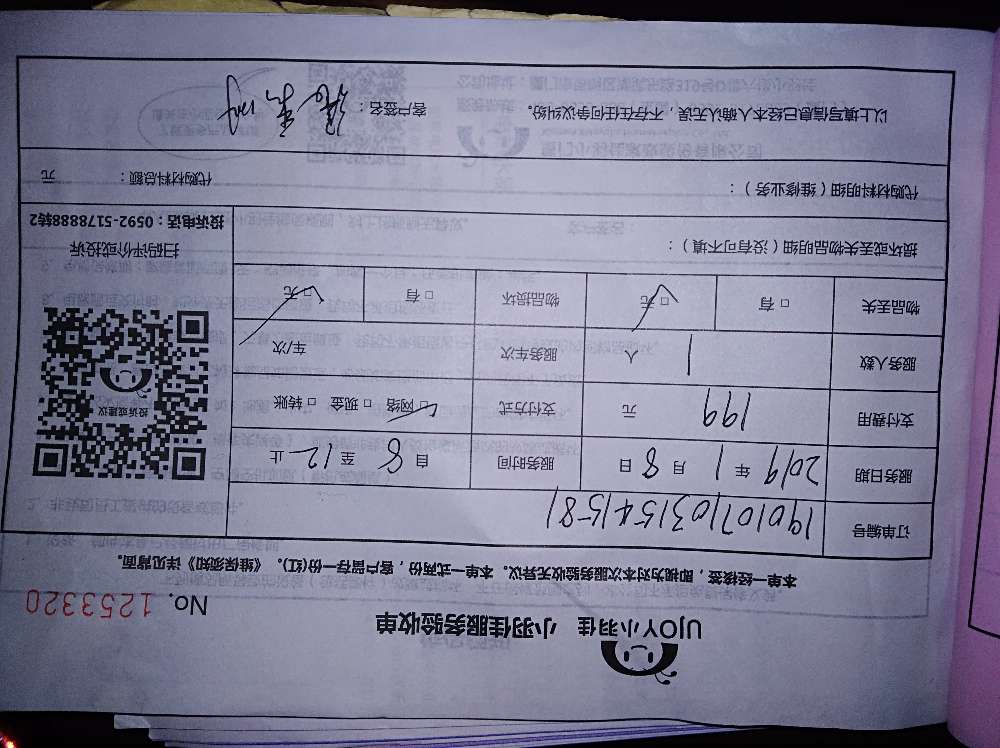 UJOY小羽佳 小羽佳服务验收单
No. 1253320
本单一经接签，即视为对本次服务验收无异议。本单一式两份，客户留存一份(红)。《维保须知》详见背面。
订单编号 190107103154158 1
服务日期 2019 年 1 月 8 日 服务时间 自 8 至 12 止
支付费用 199 元 支付方式 □ 网络 □ 现金 □ 转账
服务人数 1 人 服务车次 车/次
物品丢失 □ 有 □ 无 物品损坏 □ 有 □ 无
投诉或建议
扫码评价或投诉
投诉电话：0592-5178888转2
损坏或丢失物品明细（没有可不填）：
代购材料明细（维修业务）： 代购材料总额： 元
以上填写信息已经本人确认无误，不存在任何争议纠纷。 客户签名：